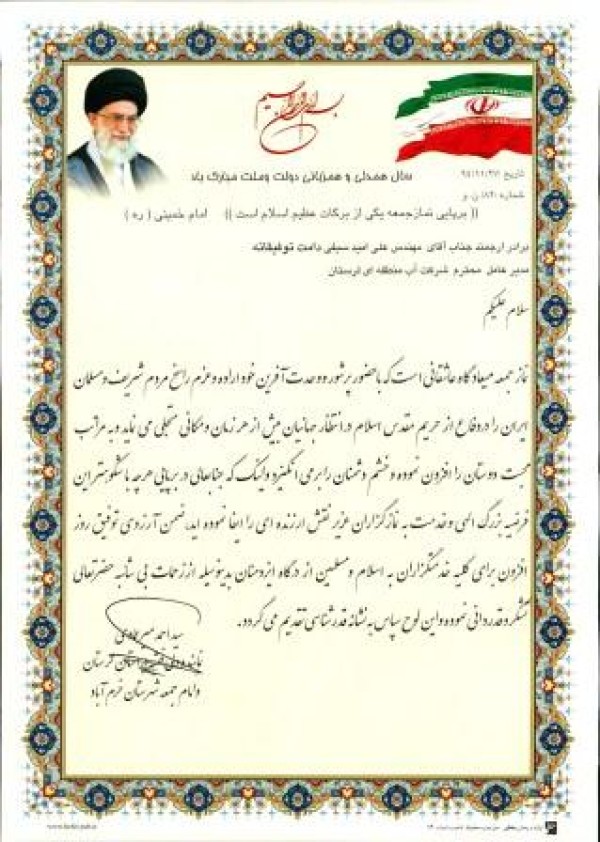 بسم الله الرحمن الرحیم
سال همدلی و همزبانی دولت وملت مبارک باد
تاریخ
شماره
(( برپایی نمازجمعه یکی از برکات عظیم اسلام است )) امام خمینی ( ره )
برادر ارجمند جناب آقای مهندس علی امید سیفی دامت توفیقاته
مدیر عامل محترم شرکت آب منطقه ای لرستان
سلام علیکم
نماز جمعه میعادگاه عاشقانی است که باحضور پرشور و وحدت آفرین خود اراده و عزم راسخ مردم شریف و مسلمان
ایران را دردفاع از حریم مقدس اسلام در انتظار جهانیان بیش از هر زمان و مکانی متجلی می نماید و به مراتب
محبت دوستان را افزون نموده و خشم دشمنان را برمی انگیزد و اینک که جنابعالی در برپائی هرچه باشکوهتر این
فرضیه بزرگ الهی و خدمت به نمازگزاران عزیز نقش ارزنده ای را ایفا نموده اید، ضمن آرزوی توفیق روز
افزون برای کلیه خدمتگزاران به اسلام و مسلمین از درگاه ایزدمنان بدینوسیله اززحمات بی شائبه حضرتعالی
تشکر و قدردانی نموده و این لوح سپاس به نشانه قدرشناسی تقدیم می گردد.
سید احمد
نماینده ولی فقیه استان لرستان
و امام جمعه شهرستان خرم آباد